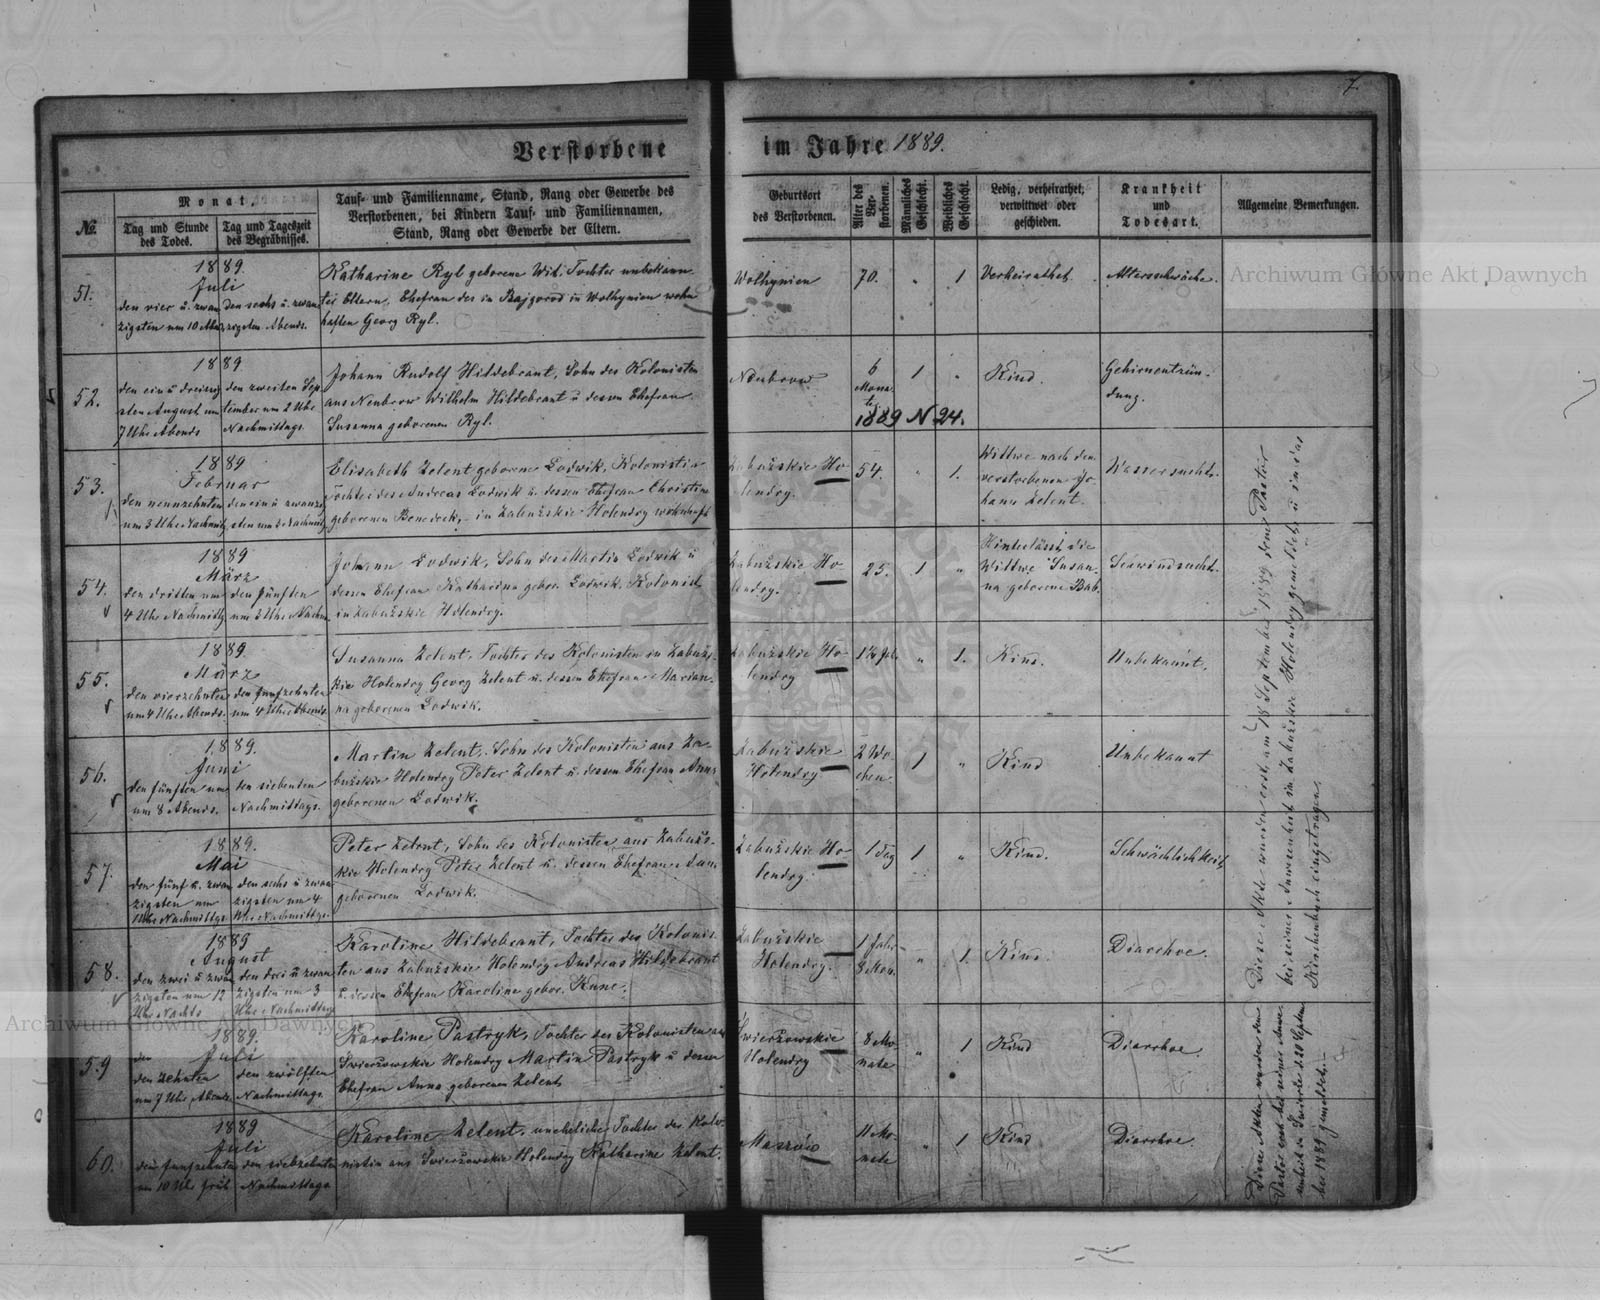 7.
Verstorbene im Jahre 1889.
№
Monat,
Tag und Stunde
des Todes.
Tag und Tageszeit
des Begräbnisses.
Tauf- und Familienname, Stand, Rang oder Gewerbe des
Verstorbenen, bei Kindern Tauf- und Familiennamen,
Stand, Rang oder Gewerbe der Eltern.
Geburtsort
des Verstorbenen.
Alter des
Ver-
storbenen.
Männliches
Geschlecht.
Weibliches
Geschlecht.
Ledig, verheirathet,
verwittwet oder
geschieden.
Krankheit
und
Todesart.
Allgemeine Bemerkungen.
51.
1889.
Juli
den vier u. zwan
zigsten um 10 Abds.
den sechs u. zwan
zigsten Abends.
Katharine Ryl geborene Wit, Tochter unbekann-
ter Eltern, Ehefrau des in Bajgorod in Wolhynien wohn
haften Georg Ryl.
Wolhynien
70.
"
1
Verheirathet.
Altersschwäche.
52.
1889
den ein u dreissig
sten August um
7 Uhr Abends
den zweiten Sep
tember um 2 Uhr
Nachmittags.
Johann Rudolf Hildebrant, Sohn des Kolonisten
aus Neubrow Wilhelm Hildebrant u dessen Ehefrau
Susanna geborenen Ryl.
Neubrow
6
Mona
te
1
"
Kind.
Gehirnentzün-
dung.
1889 N 24.
53.
1889
Februar
den neunzehnten
um 3 Uhr Nachmitg
den ein u zwanzig
sten um 2 Nachmitg
Elisabeth Zelent geborene Lodwik, Kolonistin
Tochter des Andreas Lodwik u. dessen Ehefrau Christine
geborenen Benedeck, in Zabużskie Holendry wohnhaft
Zabużskie Ho-
lendry.
54.
"
1.
Wittwe nach dem
verstorbenen Jo-
hann Zelent.
Wassersucht.
54.
1889
März
den dritten um
4 Uhr Nachmittg
den fünften
um 3 Uhr Nachm.
Johann Lodwik, Sohn des Martin Lodwik u
dessen Ehefrau Katharina gebor. Lodwik, Kolonist
in Zabużskie Holendry.
Zabużskie Ho-
lendry.
25.
1
"
Hinterlässt die
Wittwe Susan-
na geborene Bab.
Schwindsucht.
55.
1889.
März
den vierzehnten
um 4 Uhr Abends.
den fünfzehnten
um 4 Uhr Abends.
Susanna Zelent, Tochter des Kolonisten in Zabużs-
kie Holendry Georg Zelent u. dessen Ehefrau Marian-
na geborenen Lodwik.
Zabużskie Ho-
lendry
"
1.
Kind.
Unbekannt.
56.
1889.
Juni
den fünften um
um 8 Abends.
den siebenten
Nachmittags.
Martin Zelent, Sohn des Kolonisten aus Za-
bużskie Holendry Peter Zelent u. dessen Ehefrau Anna
geborenen Lodwik.
Zabużskie
Holendry
2 Wo
chen.
1
"
Kind
Unbekannt
57.
1889.
Mai
den fünf u. zwan
zigsten um
Uhr Nachmittgs.
den sechs u zwan
zigsten um 4
Uhr Nachmittgs.
Peter Zelent, Sohn des Kolonisten aus Zabużs-
kie Holendry Peter Zelent u. dessen Ehefrau Anna
geborenen Lodwik.
Zabużskie Ho-
lendry.
1 Tag
1
"
Kind.
Schwächlichkeit
58.
1889
August
den zwei u zwan
zigsten um 12
Uhr Nachts
den drei u zwan
zigsten um 3
Uhr Nachmittag
Karoline Hildebrant, Tochter des Kolonis-
ten aus Zabużskie Holendry Andreas Hildebrant
u. dessen Ehefrau Karoline gebor. Kunc.
Zabużskie
Holendry.
1 Jahr
8 Mon.
"
1.
Kind.
Diarrhoe.
59
1889.
Juli
den zehnten
um 7 Uhr Abends
den zwölften
Nachmittags.
Karoline Pastryk, Tochter des Kolonisten aus
Swierżowskie Holendry Martin Pastryk u dessen
Ehefrau Anna geborenen Zelent
Swierżowskie
Holendry
8 Mo-
nate
"
1
Kind
Diarrhoe.
60.
1889
Juli
den fünfzehnten
um 10 Uhr früh
den siebzehnten
Nachmittags
Karoline Zelent, uneheliche Tochter der Kolo-
nistin aus Swierżowskie Holendry Katharine Zelent.
Maszów
11 Mo-
nate
"
1
Kind
Diarrhoe.
Diese Akte wurden erst am 18 September 1889 dem Pastor
bei seiner Anwesenheit in Zabużskie Holendry gemeldet u in das
Kirchenbuch eingetragen.
Diese Akten wurden dem
Pastor erst bei seiner Anwe-
senheit in Swierże d. 28 Septem
ber 1889 gemeldet.
Archiwum Główne Akt Dawnych
Archiwum Główne Akt Dawnych